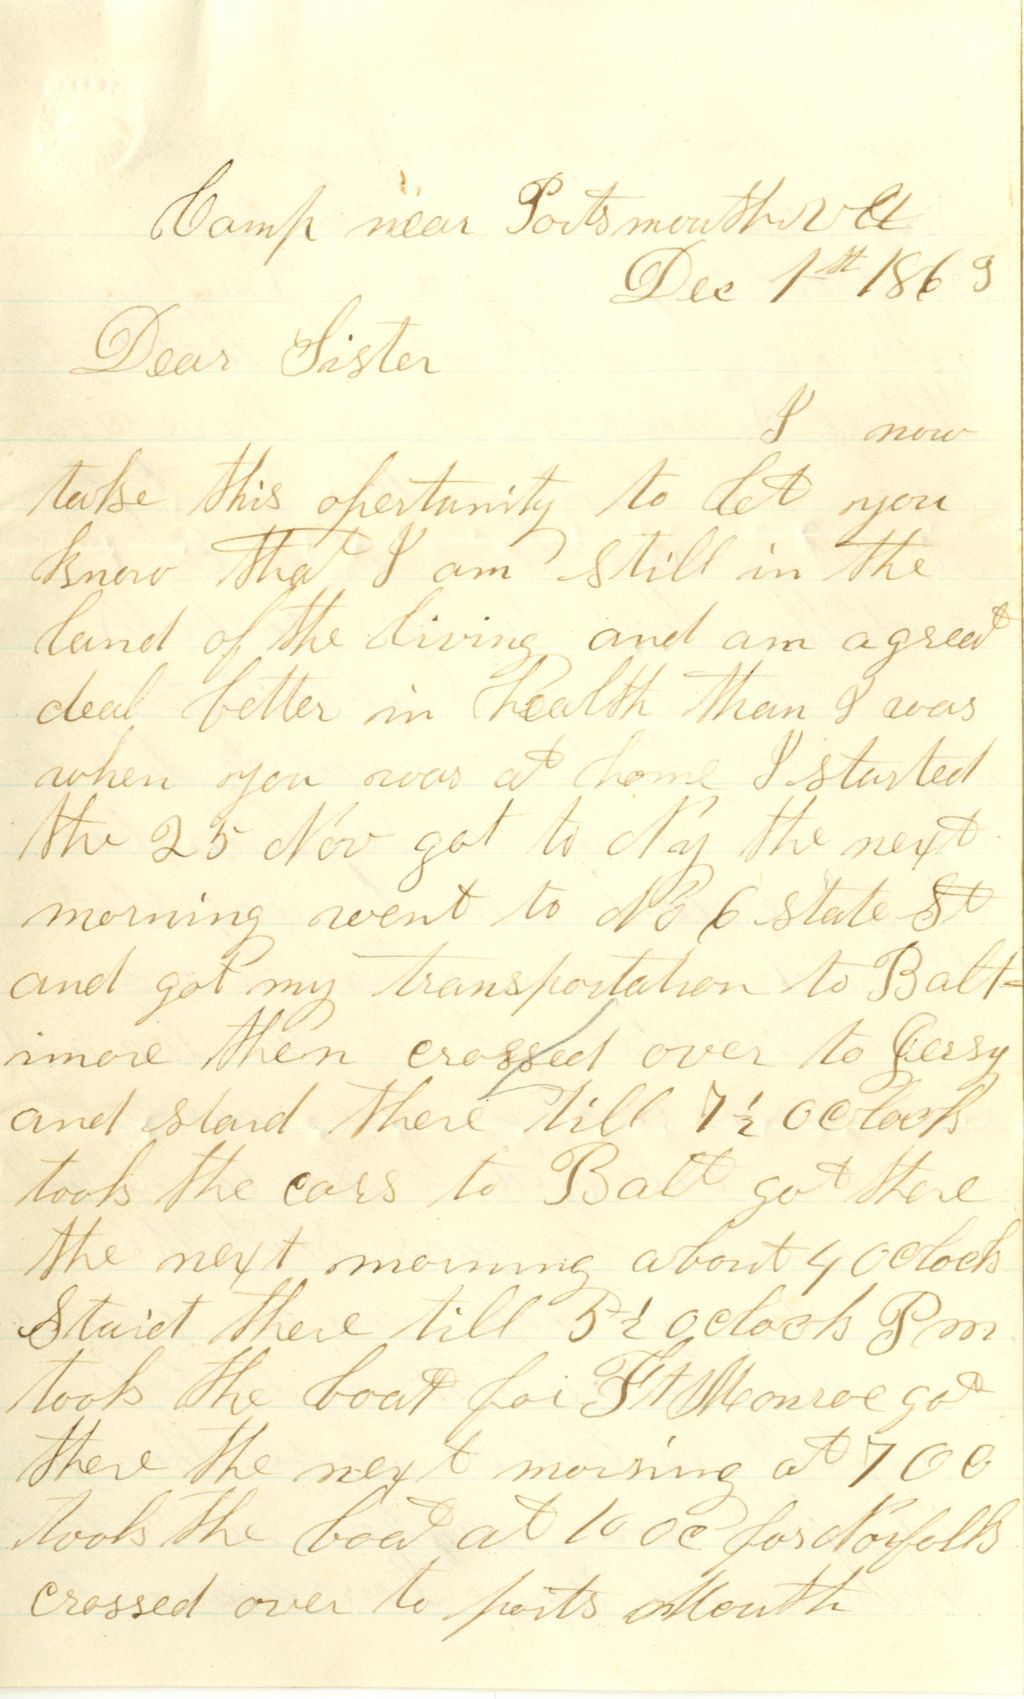 Camp near Portsmouth Va
Dec 1st 1863
Dear Sister
I now
take this opertunity to let you
know that I am still in the
land of the living and am a great
deal better in health than I was
when you was at home I started
the 25 Nov got to Ny the next
morning went to No 6 state St
and got my transportation to Balt-
imore then crossed over to Jersy
and staid there till 7 1/2 oclock
took the cars to Balt got there
the next morning about 4 oclock
Staid there till 5 1/2 oclock Pm
took the boat for Ft Monroe got
there the next morning at 7 OC
took the boat at 10 oc for Norfolk
crossed over to ports Mouth